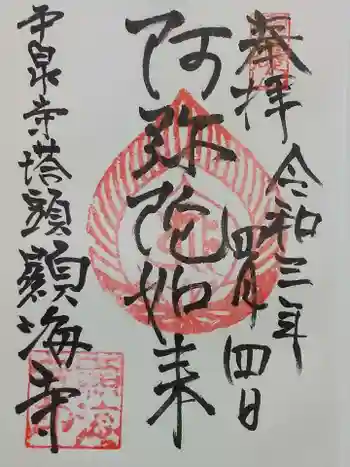 奉拝
令和三年
四月四日
阿弥陀如来
平泉寺塔頭顯海寺